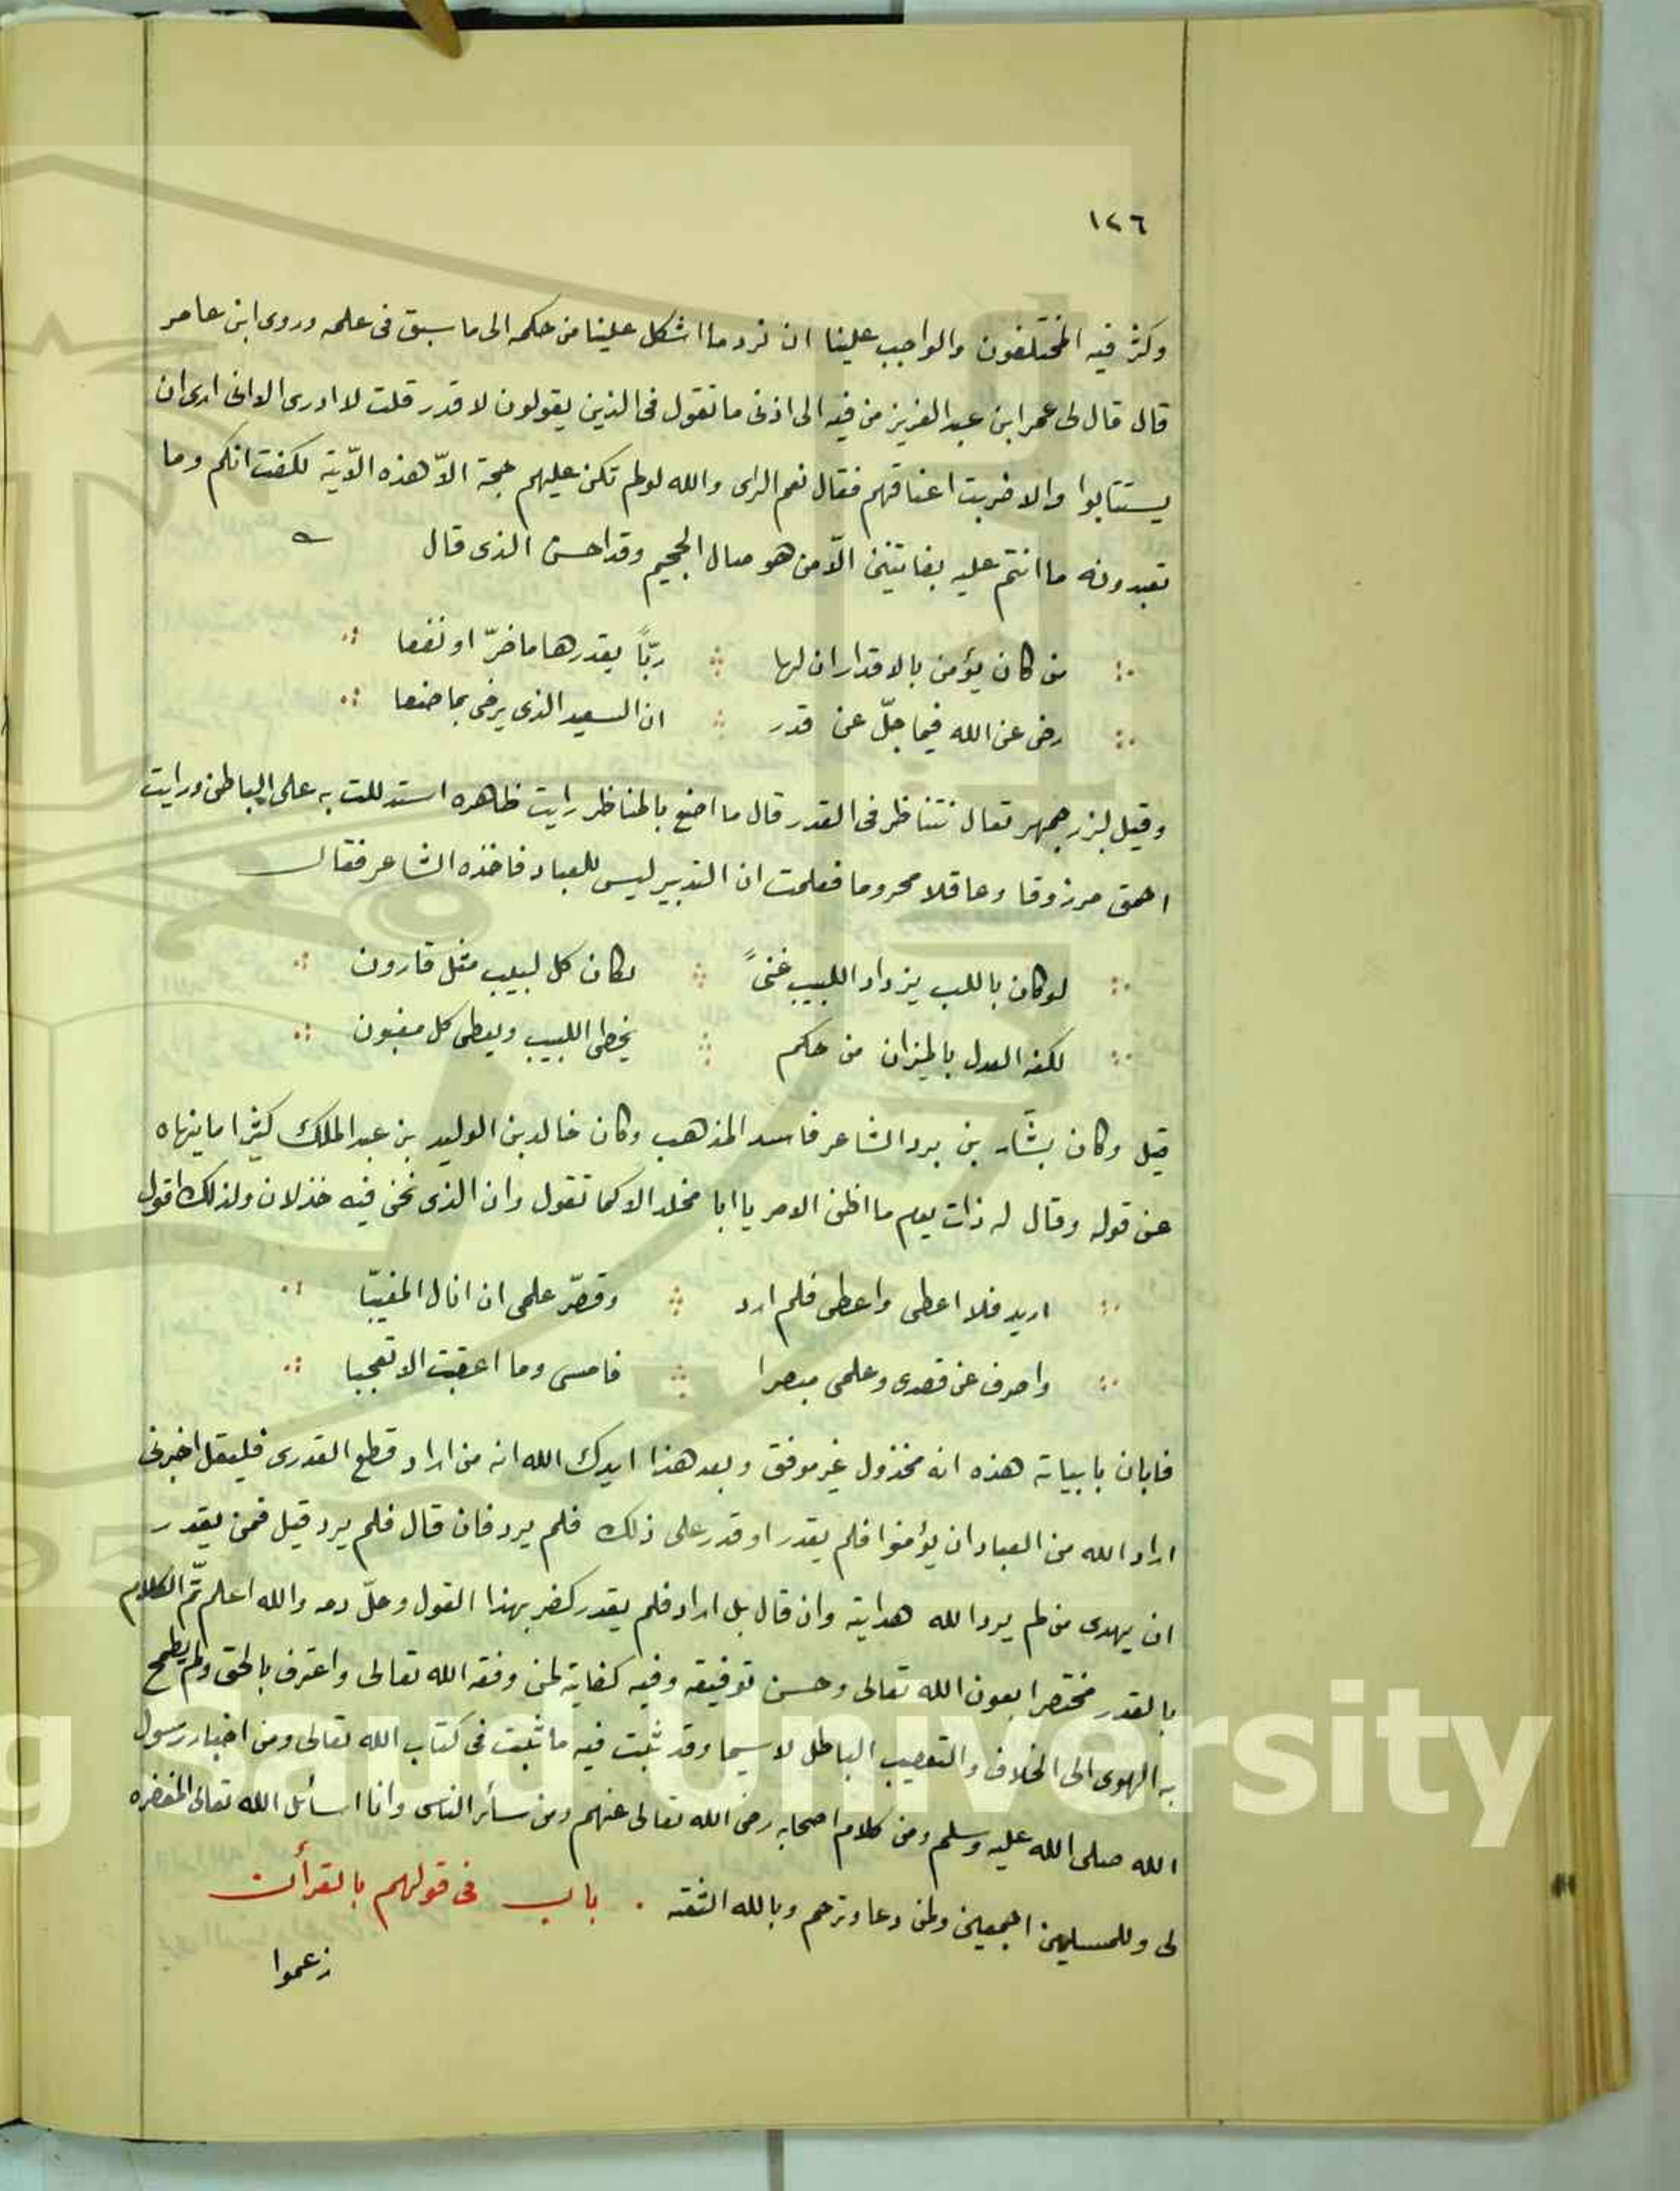 ١٢٦
وكثر فيه المختلفون والواجب علينا ان نرد ما اشكل علينا من حكمه الى ما سبق فى علمه وروى ابن عامر
قال قال لى عمر ابن عبد العزيز من فيه الى اذنى ما تقول فى الذين يقولون لا قدر قلت لا ادرى الا انى ارى ان
يستتابوا والا ضربت اعناقهم فقال نعم الراى والله لو لم تكن عليهم حجة الّا هذه الآية لكفت انكم وما
تعبدونه ما انتم عليه بفاتنين الّا من هو صال الجحيم وقد احسن الذى قال
من كان يؤمن بالاقدار ان لها ربّاً يقدرها ما ضرّ او نفعا
رضى عن الله فيما جلّ عن قدر ان السعيد الذى يرضى بما صنعا
وقيل لبزرجمهر تعال نتناظر فى القدر قال ما اصنع بالمناظر رايت ظاهره استدللت به على الباطن ورايت
احمق مرزوقا وعاقلا محروما فعلمت ان التدبير ليس للعباد فاخذه الشاعر فقال
لو كان باللب يزداد اللبيب غنىً لكان كل لبيب مثل قارون
لكنه العدل بالميزان من حكم يخطى اللبيب ويعطى كل مغبون
قيل وكان بشّار بن برد الشاعر فاسد المذهب وكان خالد بن الوليد بن عبد الملك كثيرا ما ينهاه
عن قوله وقال له ذات يوم ما اظن الامر يا ابا مخلد الا كما تقول وان الذى نحن فيه خذلان ولذلك اقول
اريد فلا اعطى واعطى فلم ارد وقصّر علمى ان انال المغيبّا
واصرف عن قصدى وعلمى مبصرا فامسى وما اعقبت الا تعجبا
فابان بابياته هذه انه مخذول غير موفق وبعد هذا ايدك الله انه من اراد قطع القدرى فليقل اخبرنى
اراد الله من العباد ان يؤمنوا فلم يقدر او قدر على ذلك فلم يرد فان قال فلم يرد قيل فمن يقدر
ان يهدى من لم يرد الله هدايته وان قال بل اراد فلم يقدر كفر بهذا القول وحلّ دمه والله اعلم تمّ الكلام
بالقدر مختصرا بعون الله تعالى وحسن توفيقه وفيه كفاية لمن وفقه الله تعالى واعترف بالحق ولم يطمح
به الهوى الى الخلاف والتعصيب الباطل لاسيما وقد ثبت فيه ما ثبت فى كتاب الله تعالى ومن اخبار رسول
الله صلى الله عليه وسلم ومن كلام اصحابه رضى الله تعالى عنهم ومن سائر الناس وانا اسائل الله تعالى المغفره
لى وللمسلمين اجمعين ولمن دعا وترحم وبالله الثقته . باب فى قولهم بالقرأن
زعموا
g Saud University